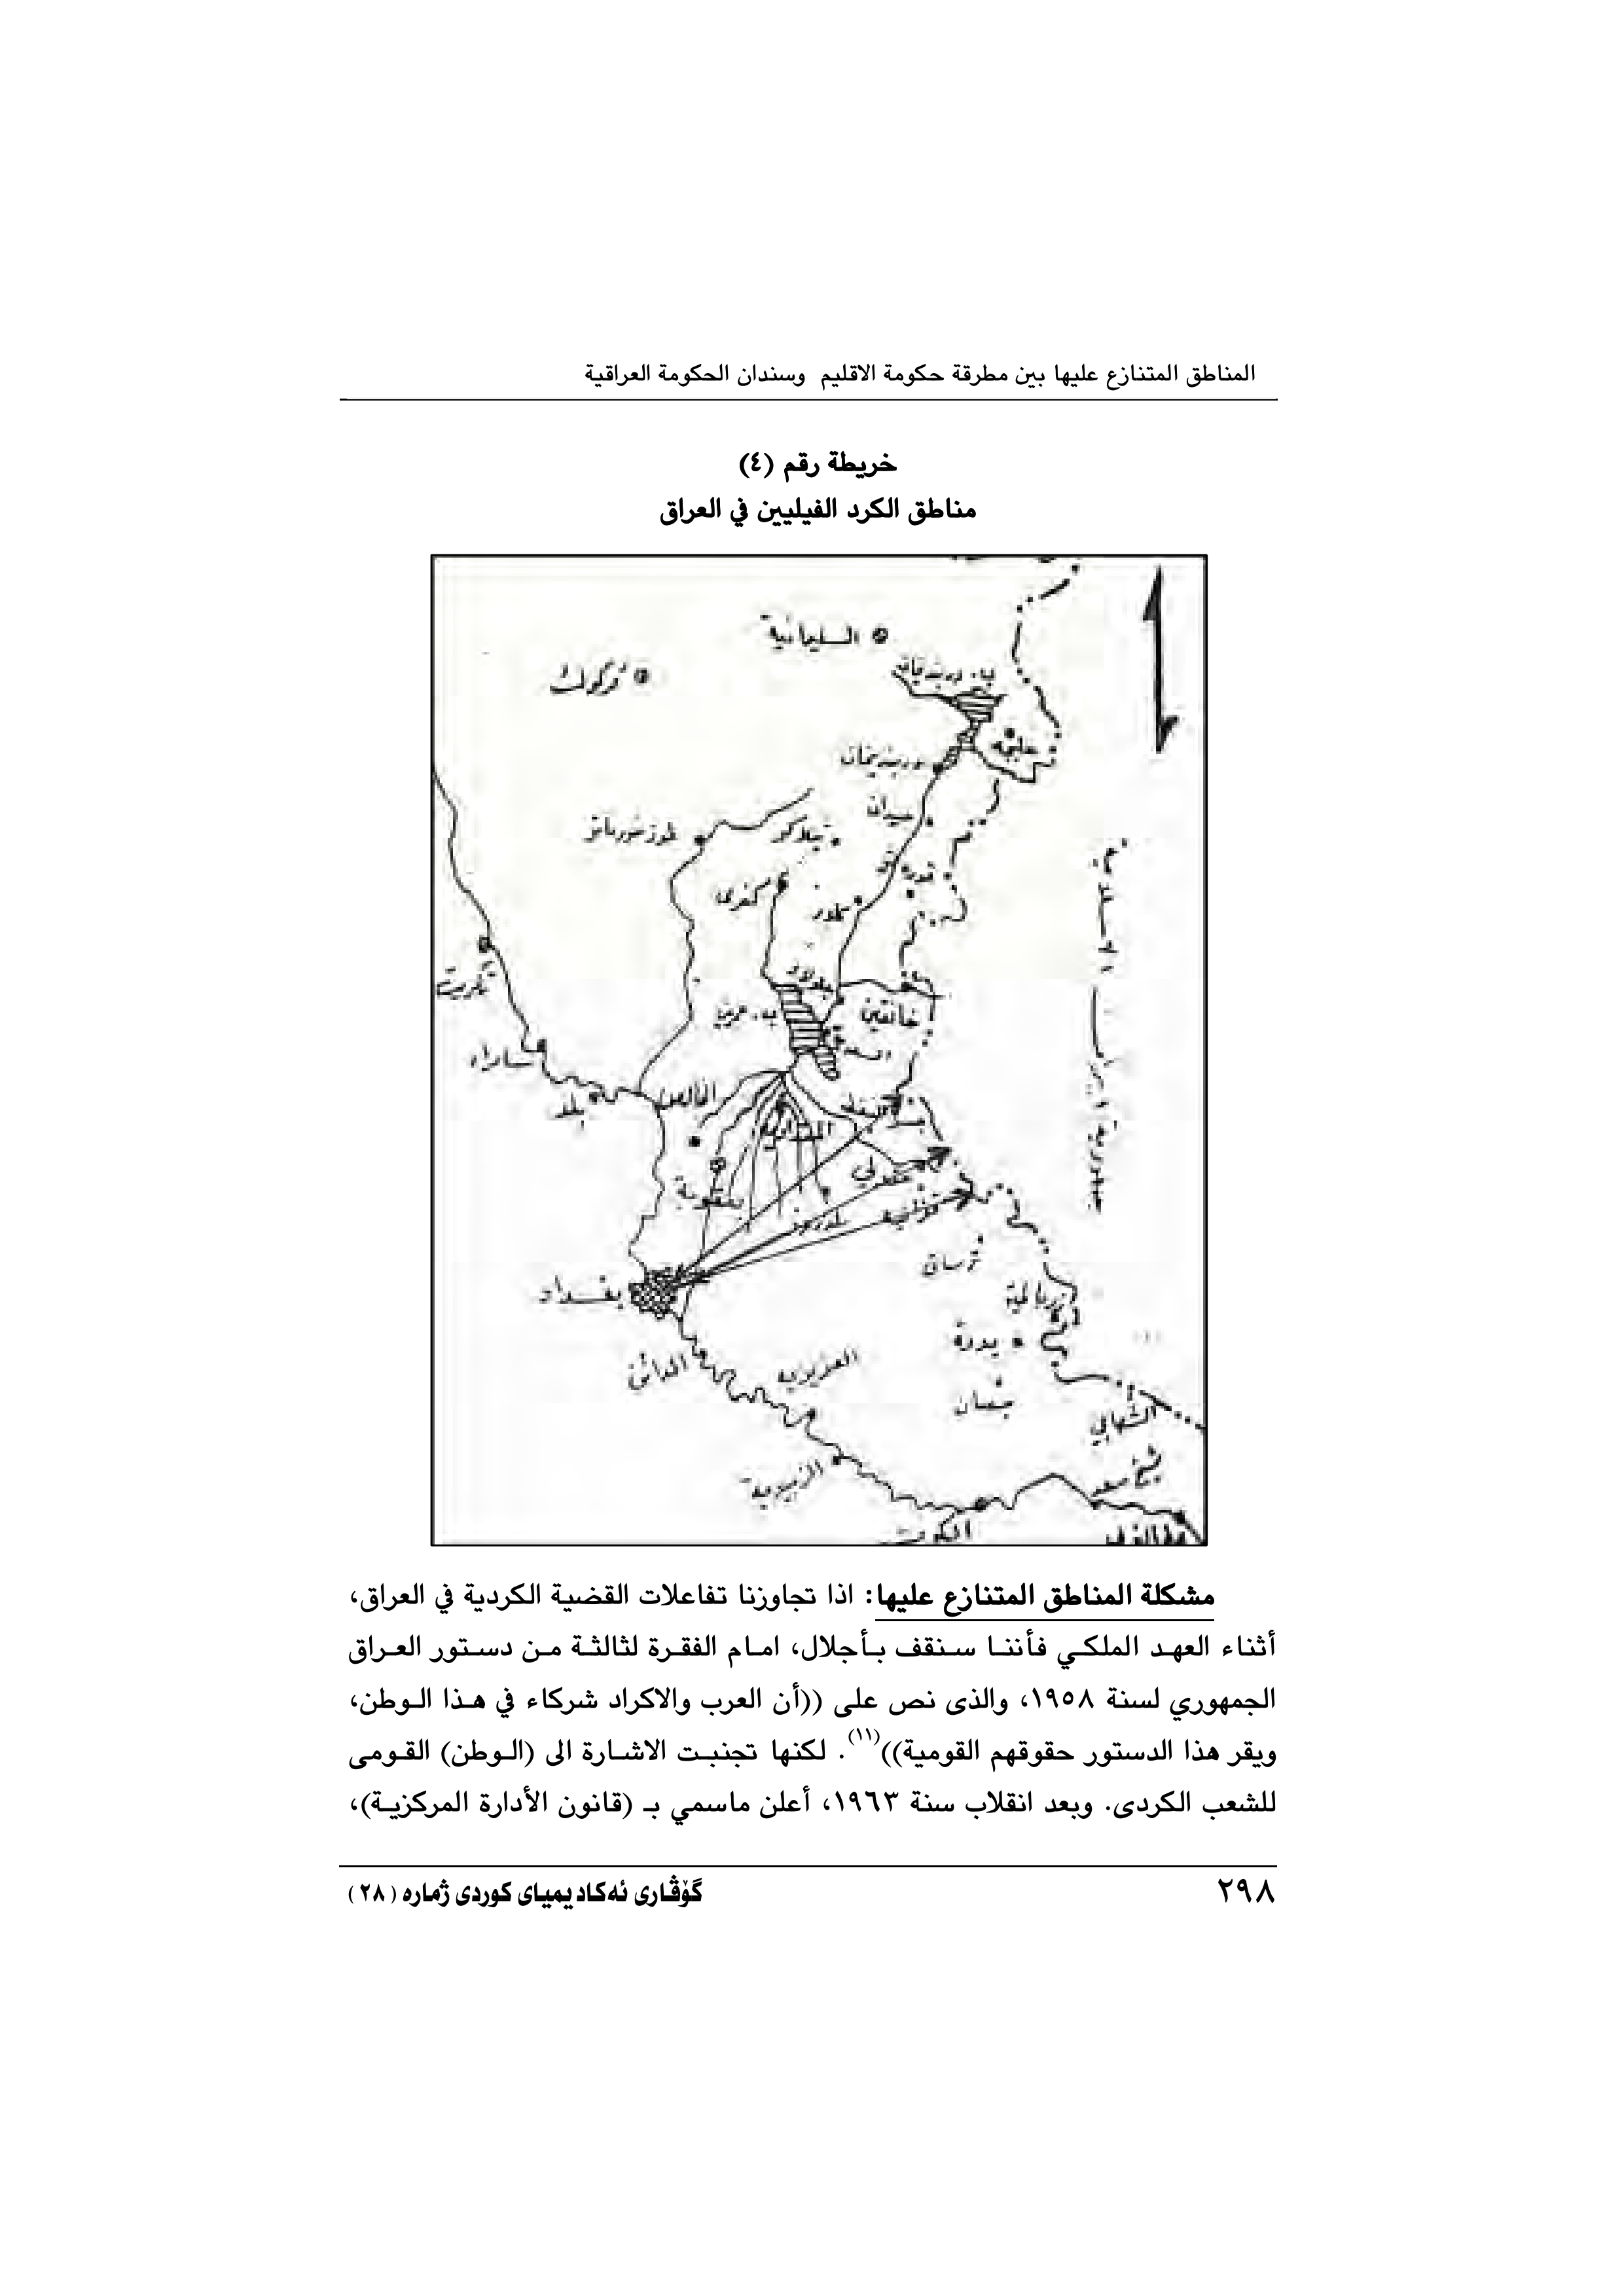 المناطق المتنازع عليها بين مطرقة حكومة الاقليم وسندان الحكومة العراقية
خريطة رقم (٤)
مناطق الكرد الفيليين في العراق
السليمانية
كركوك
دربنديخان
حلبجه
ميدان
طوزخورماتو
كفرى
تكريت
جلولاء
خانقين
سامراء
بلد
الخالص
مندلي
بعقوبة
بلدروز
ترساق
بغداد
زرباطية
بدرة
المدائن
العزيزية
جصان
الشهابي
شيخ سعد
الزبيدية
الكوت
جمهورية ايران الاسلامية
مشكلة المناطق المتنازع عليها: اذا تجاوزنا تفاعلات القضية الكردية في العراق،
أثناء العهد الملكي فأننا سنقف بأجلال، امام الفقرة لثالثة من دستور العراق
الجمهوري لسنة ١٩٥٨، والذى نص على ((أن العرب والاكراد شركاء في هذا الوطن،
ويقر هذا الدستور حقوقهم القومية))(١١). لكنها تجنبت الاشارة الى (الوطن) القومى
للشعب الكردى. وبعد انقلاب سنة ١٩٦٣، أعلن ماسمي بـ (قانون الأدارة المركزية)،
٢٩٨
گۆڤاری ئەکادیمیای کوردی ژمارە (٢٨)